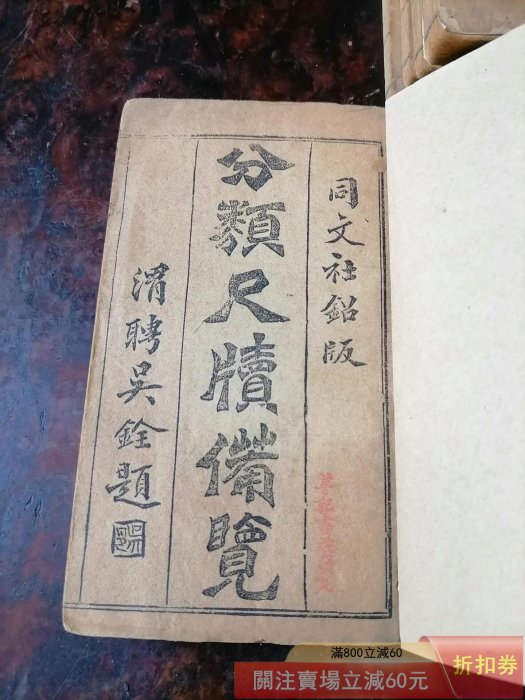 同文社鉛版
分類尺牘備覽
渭聘吳銓題
滿800立減60
關注賣場立減60元
折扣券